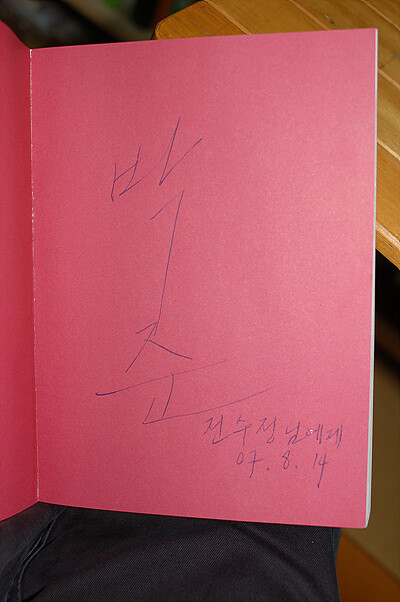 박
준
전수정님에게
07. 8. 14